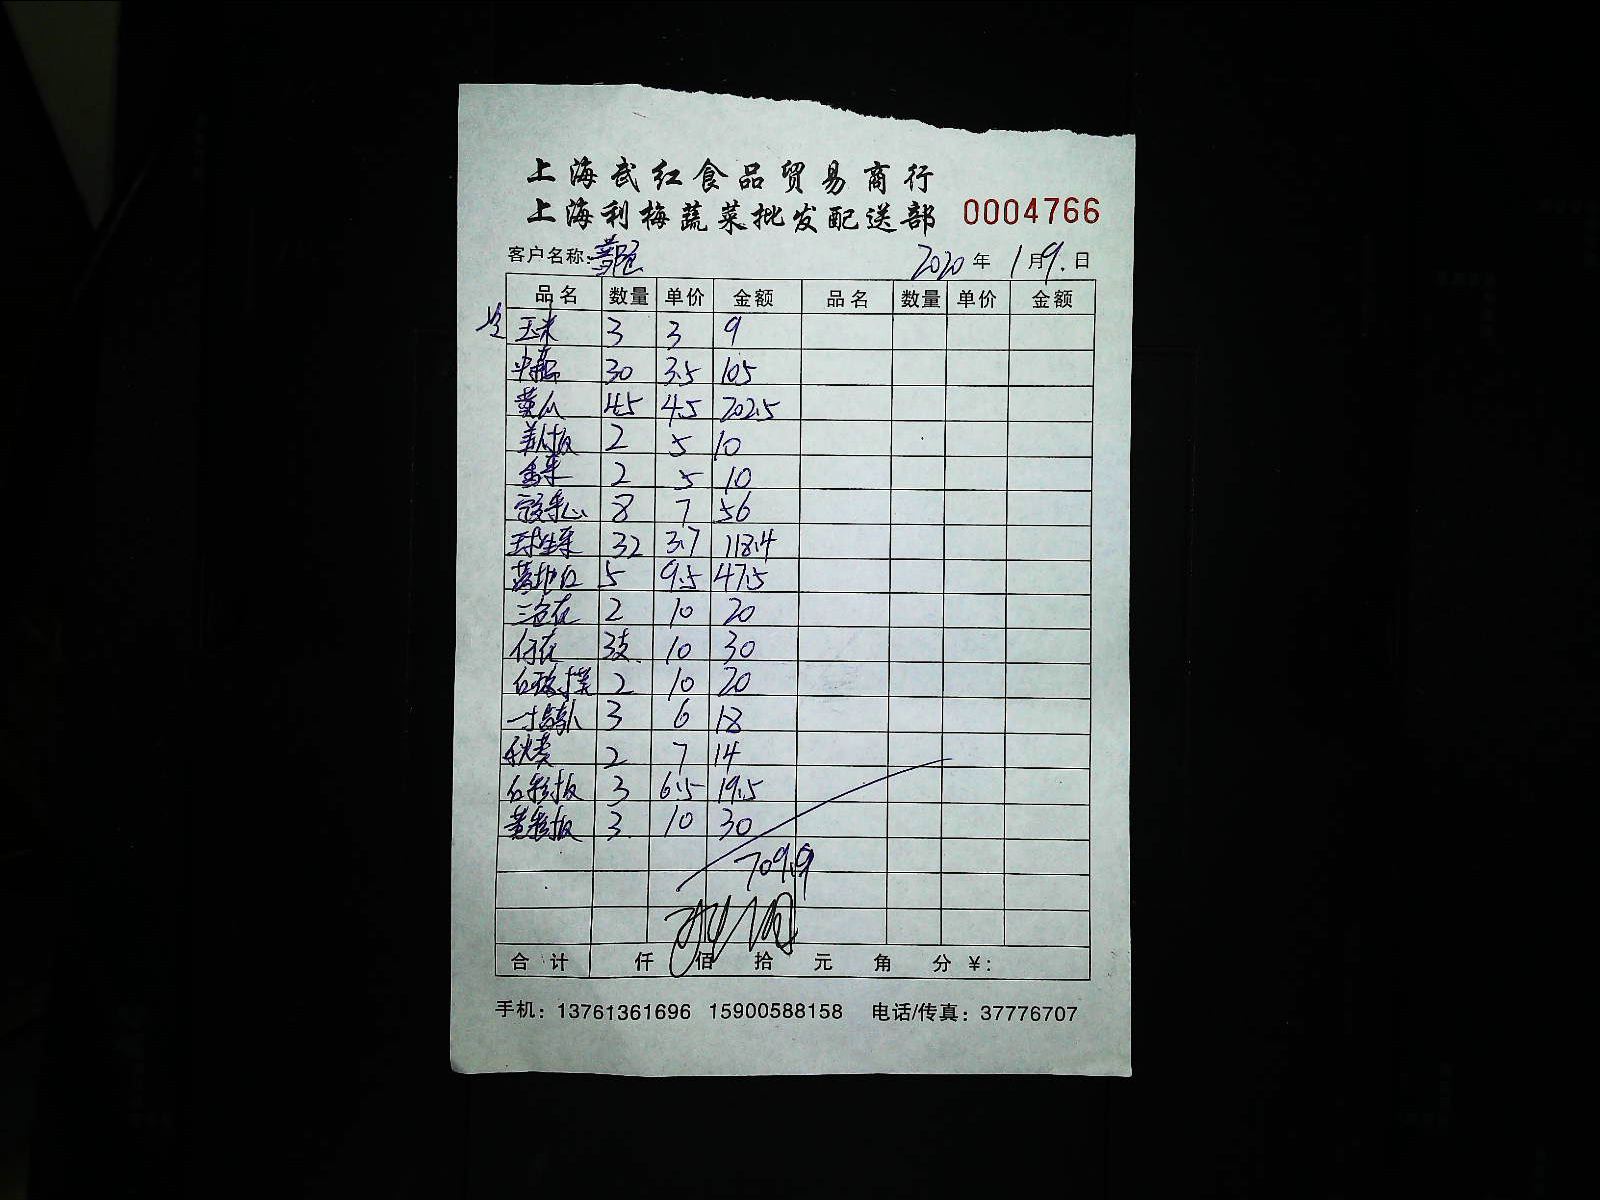 上海武红食品贸易商行
上海利梅蔬菜批发配送部 0004766
客户名称: 2020年1月9日
品名 数量 单价 金额 品名 数量 单价 金额
玉米 3 3 9
30 3.5 105
45 4.5 202.5
2 5 10
香菜 2 5 10
8 7 56
球生菜 32 3.7 118.4
落地红 5 9.5 47.5
三色花 2 10 20
3支 10 30
2 10 20
3 6 18
秋葵 2 7 14
红彩椒 3 6.5 19.5
黄彩椒 3 10 30
709.9
合计 仟 佰 拾 元 角 分 ¥:
手机：13761361696 15900588158 电话/传真：37776707